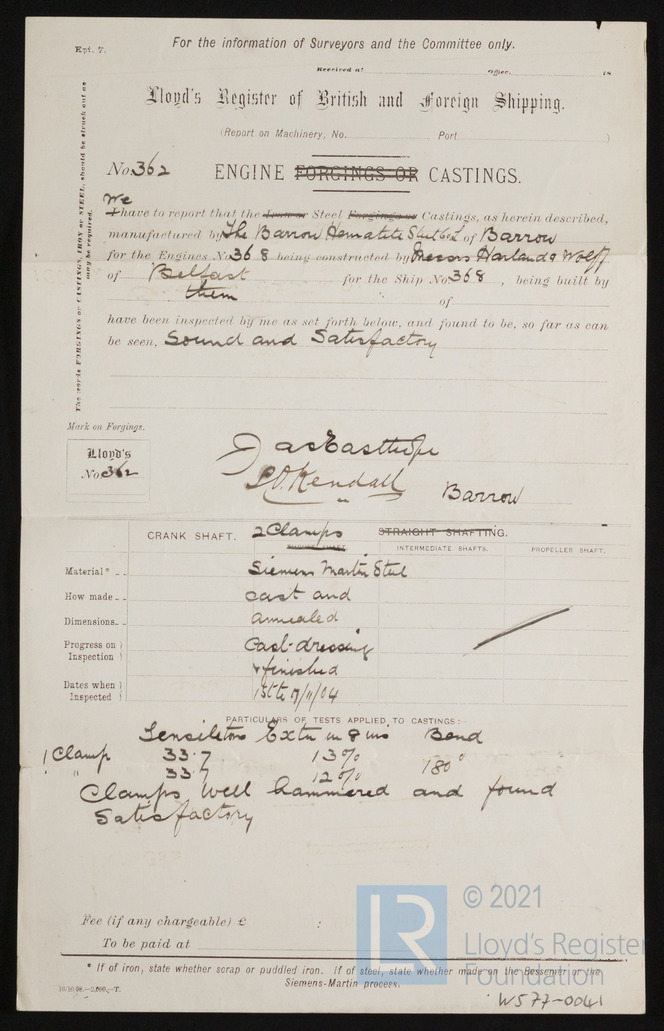 Rpt. 7.
For the information of Surveyors and the Committee only.
Received at Office, 18
Lloyd's Register of British and Foreign Shipping.
(Report on Machinery, No. Port )
No. 362 ENGINE FORGINGS OR CASTINGS.
We
I have to report that the Iron or Steel Forgings or Castings, as herein described,
manufactured by The Barrow Hematite Steel Co Ld of Barrow
for the Engines No. 368 being constructed by Messrs Harland & Wolff
of Belfast for the Ship No. 368, being built by
them of
have been inspected by me as set forth below, and found to be, so far as can
be seen, Sound and Satisfactory
The words FORGINGS or CASTINGS, IRON or STEEL, should be struck out as
may be required.
Mark on Forgings.
Lloyd's
No. 362
Jas Easthope
Kendall
Barrow
CRANK SHAFT. 2 Clamps STRAIGHT SHAFTING.
INTERMEDIATE SHAFTS. PROPELLER SHAFT.
Material* Siemens Martin Steel
How made cast and
Dimensions annealed
Progress on Inspection Cast-dressing
& finished
Dates when Inspected /11/04
PARTICULARS OF TESTS APPLIED TO CASTINGS:-
Tensile tons Extn in 8 ins Bend
1 Clamp 33.7 13%
1 " 33.7 12% 180°
Clamps well hammered and found
Satisfactory
Fee (if any chargeable) £ :
To be paid at
* If of iron, state whether scrap or puddled iron. If of steel, state whether made on the Bessemer or the
Siemens-Martin process.
10/10.98.—2,000,—T.
W577-0041
LR
© 2021
Lloyd's Register
Foundation